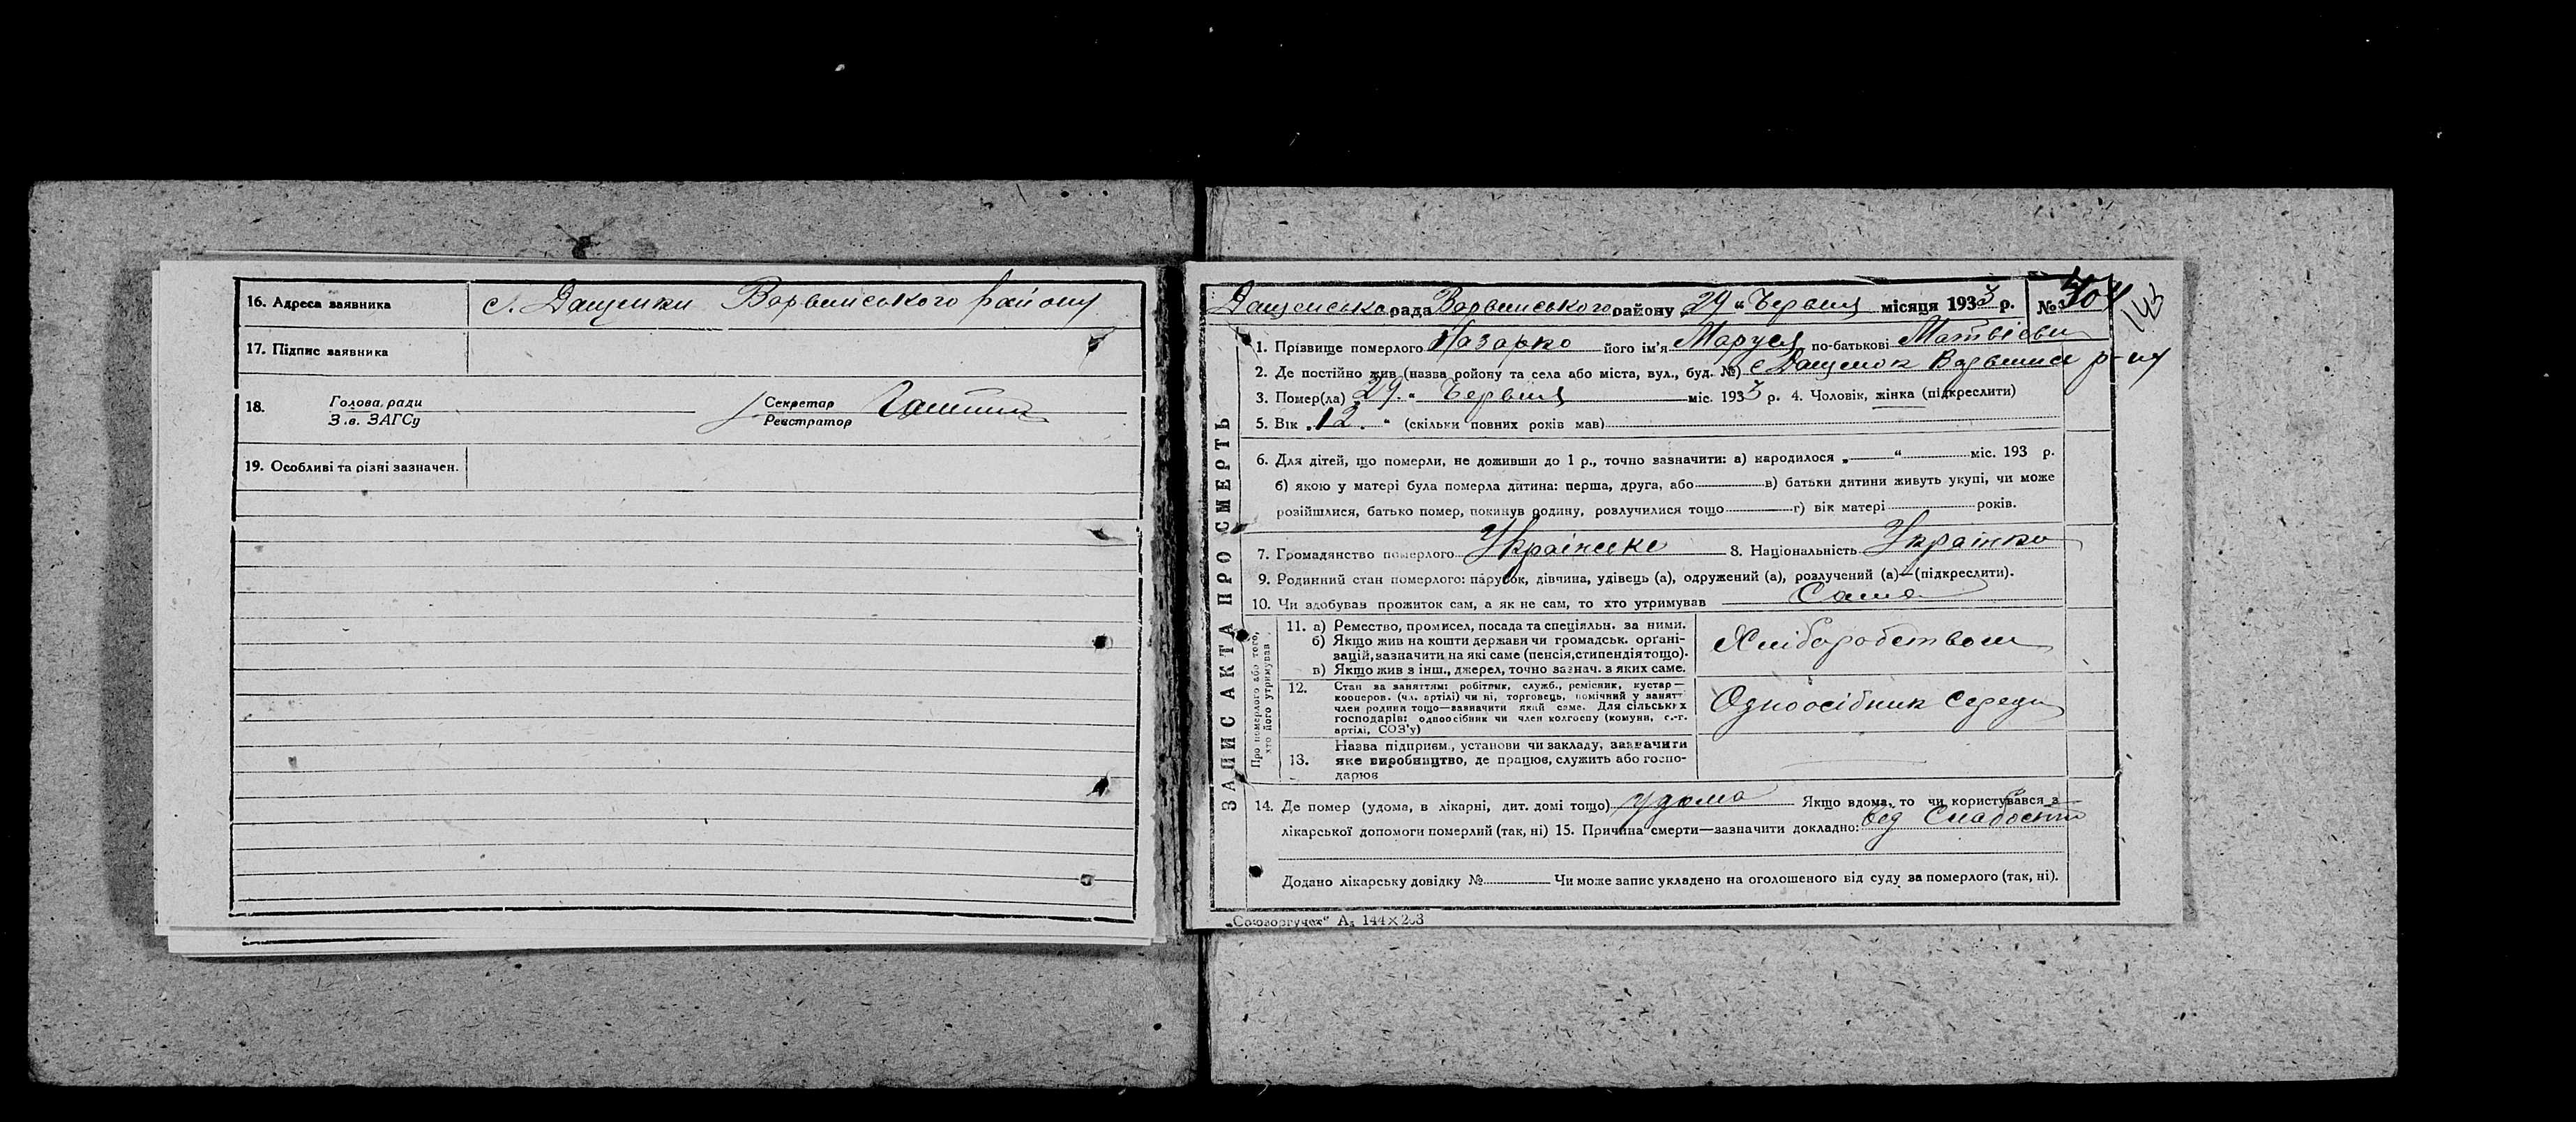 16. Адреса заявника с. Дащенки Варвинського району
17. Підпис заявника
18. Голова ради Секретар
З.в. ЗАГСу Реєстратор
19. Особливі та різні зазначен.
Дащенська рада Варвинського району „29“ Червня місяця 1933 р. №
143
ЗАПИС АКТА ПРО СМЕРТЬ
1. Прізвище померлого Назарко його ім'я Маруся по-батькові Матвієвн
2. Де постійно жив (назва району та села або міста, вул., буд. №) с Дащенок Варвинск р-ну
3. Помер(ла) „29.“ Червня міс. 1933 р. 4. Чоловік, жінка (підкреслити)
5. Вік „12.“ (скільки повних років мав)
6. Для дітей, що померли, не доживши до 1 р., точно зазначити: а) народилося „ “ міс. 193 р.
б) якою у матері була померла дитина: перша, друга, або в) батьки дитини живуть укупі, чи може
розійшлися, батько помер, покинув родину, розлучилися тощо г) вік матері років.
7. Громадянство померлого Українське 8. Національність Українка
9. Родинний стан померлого: парубок, дівчина, удівець (а), одружений (а), розлучений (а)—(підкреслити).
10. Чи здобував прожиток сам, а як не сам, то хто утримував Сама
Про померлого або того,
хто його утримував
11. а) Ремество, промисел, посада та спеціяльн. за ними.
б) Якщо жив на кошти держави чи громадськ. органі-
зацій, зазначити на які саме (пенсія, стипендія тощо).
в) Якщо жив з інш., джерел, точно зазнач. з яких саме.
Хліборобством
12. Стан за заняттям: робітник, служб., ремісник, кустар—
кооперов. (чл. артілі) чи ні, торговець, помічний у занятт
член родини тощо—зазначити який саме. Для сільських
господарів: одноосібник чи член колгоспу (комуни, с.-г.
артілі, СОЗ'у)
Одноосібник середн
13. Назва підприєм., установи чи закладу, зазначити
яке виробництво, де працює, служить або госпо-
дарює
14. Де помер (удома, в лікарні, дит. домі тощо) удома Якщо вдома, то чи користувався з
лікарської допомоги померлий (так, ні) 15. Причина смерти—зазначити докладно: від Слабости
Додано лікарську довідку № Чи може запис укладено на оголошеного від суду за померлого (так, ні).
„Союзоргучет“ А₅ 144×203